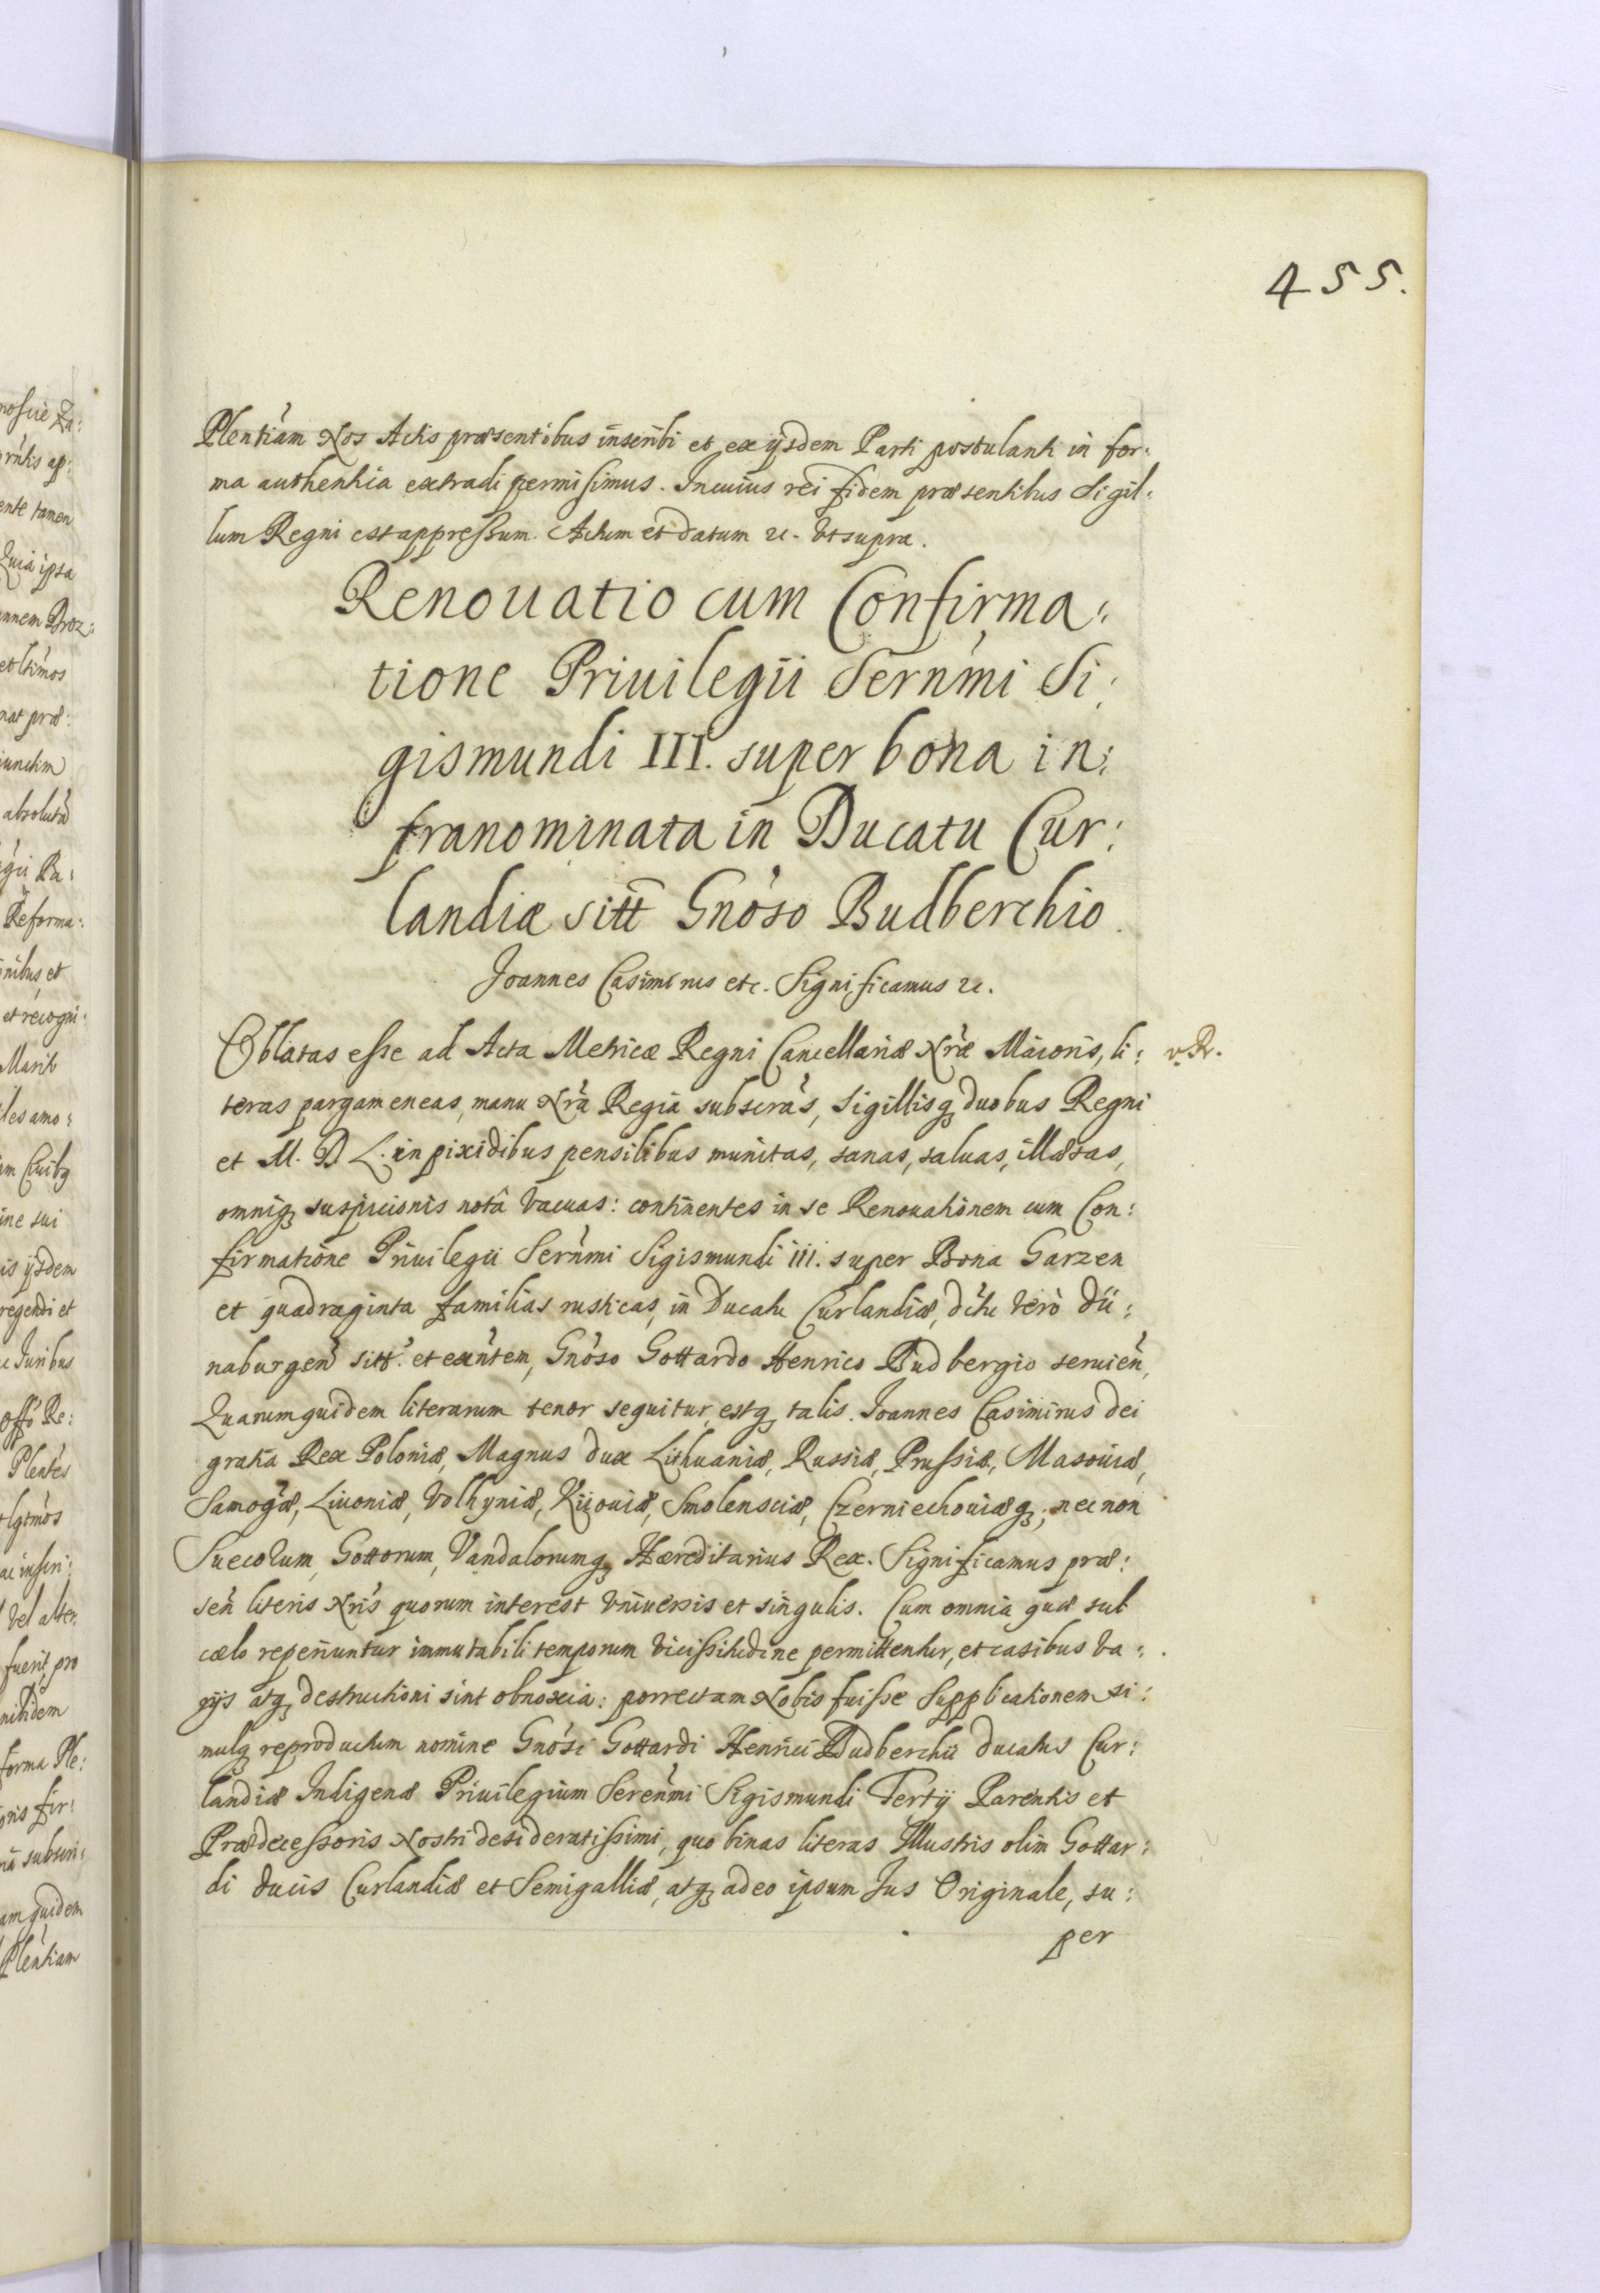 455.
Plentiam Nos Actis præsentibus inscribi et ex ijsdem Parti postulanti in for:
ma authentica extradi permisimus. In cuius rei fidem præsentibus Sigil:
lum Regni est appressum. Actum et Datum etc. Vt supra.
Renouatio cum Confirma:
tione Priuilegii Sernmi Si:
gismundi III. super bona in:
franominata in Ducatu Cur:
landiæ sitt Gnoso Budberchio.
Joannes Casimirus etc. Significamus etc.
Oblatas esse ad Acta Metricæ Regni Cancellariæ Nræ Maioris, li:
teras pargameneas, manu Nra Regia subscras, Sigillisq duobus Regni
et M. D. L. in pixidibus pensilibus munitas, sanas, saluas, illæsas,
omniq suspicionis notâ vacuas: continentes in se Renouationem cum Con:
firmatione Priuilegii Sernmi Sigismundi iii. super Bona Garzen
et quadraginta familias rusticas, in Ducatu Curlandiæ, dctu vero Dü:
naburgen sitt. et exnten, Gnoso Gottardo Henrico Budbergio seruien,
Quarum quidem literarum tenor sequitur estq talis. Joannes Casimirus Dei
gratia Rex Poloniæ, Magnus Dux Lithuaniæ, Russiæ, Prussiæ, Masouiæ,
Samogæ, Liuoniæ, Volhyniæ, Kijouiæ, Smolensciæ, Czerniechouiæq; nec non
Suecorum, Gottorum, Vandalorumq Hæreditarius Rex. Significamus præ:
sen literis Nris quorum interest vniuersis et singulis. Cum omnia quæ sub
cælo reperiuntur immutabili temporum vicissitudine permittentur, et casibus va:
rijs atq destructioni sint obnoxia: porrectam Nobis fuisse Supplicationem si:
mulq reproductum nomine Gnosi Gottardi Henrici Budberchii Ducatus Cur:
landiæ Indigenæ Priuilegium Serenmi Sigismundi Tertij Parentis et
Prædecessoris Nostri desideratissimi, quo binas literas Illustris olim Gottar:
di Ducis Curlandiæ et Semigalliæ, atq adeo ipsum Jus Originale, su:
per